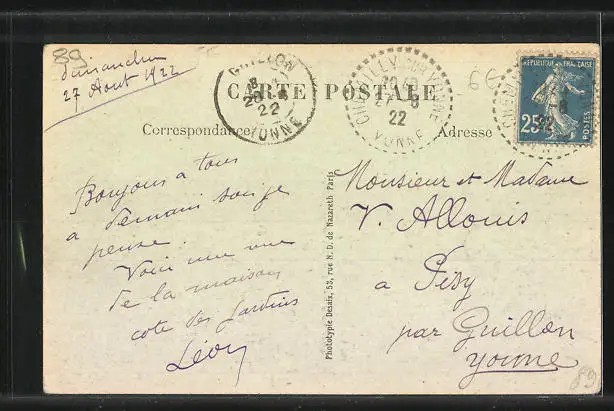 89
Dimanche
27 Aout 1922
CARTE POSTALE
GUILLON
28
22
YONNE
YONNE
22
RÉPUBLIQUE FRANÇAISE
25
POSTES
Correspondance
Adresse
Bonjour à tous
a demain soir je
pense.
Voici une vue
de la maison
cote des Jardins
Léon
Phototypie Desaix, 53, rue N. D. de Nazareth Paris
Monsieur et Madame
V. Allouis
a Pisy
par Guillon
Yonne
89